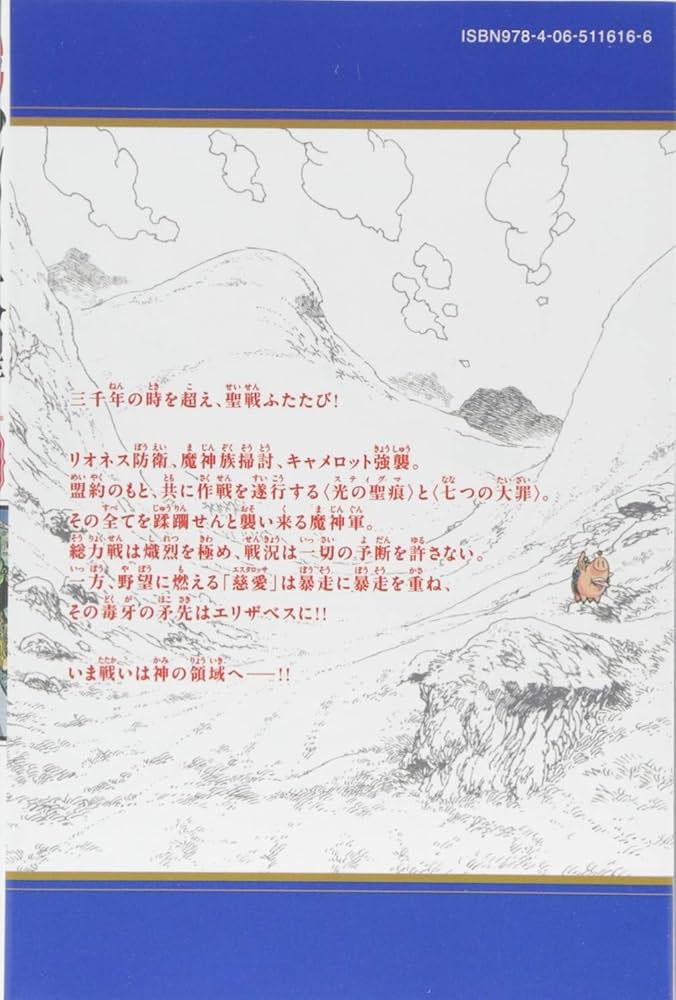 ISBN978-4-06-511616-6
三千年の時を超え、聖戦ふたたび!
リオネス防衛、魔神族掃討、キャメロット強襲。
盟約のもと、共に作戦を遂行する〈光の聖痕〉と〈七つの大罪〉。
その全てを蹂躙せんと襲い来る魔神軍。
総力戦は熾烈を極め、戦況は一切の予断を許さない。
一方、野望に燃える「慈愛」は暴走に暴走を重ね、
その毒牙の矛先はエリザベスに!!
いま戦いは神の領域へ——!!